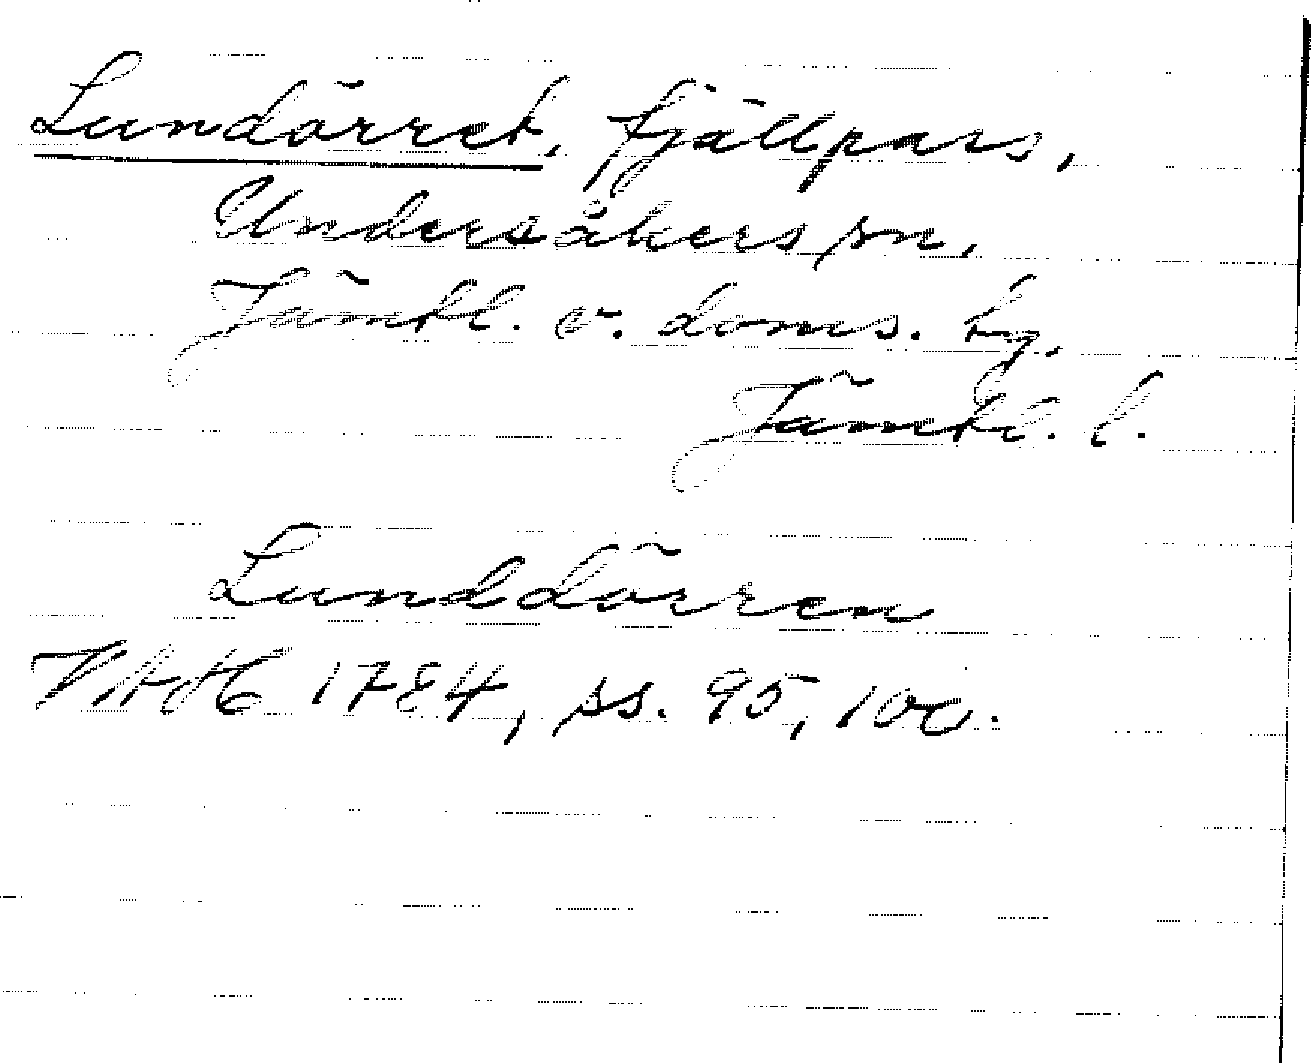 Lundörret, fjällpass,
Undersåkers sn,
Jämtl. v. doms. tg.
Jämtl. l.
Lunddörren
VAH 1784, ss. 95, 100.